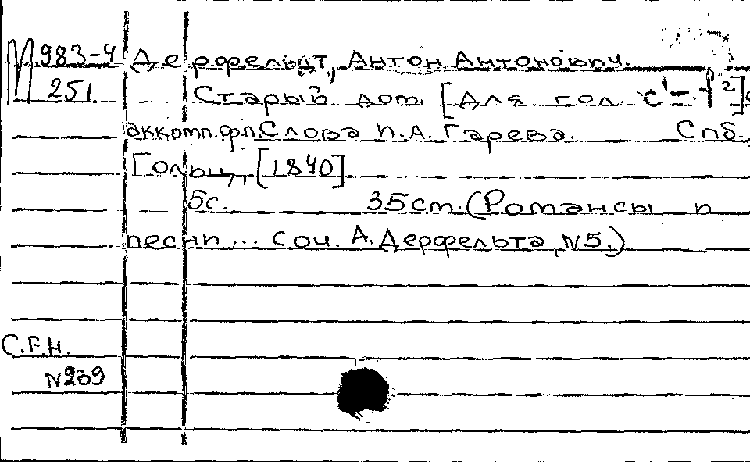 М 983-4 Дерфельдт, Антон Антонович.
251. Старый дом [Для гол. c¹–f²] с
аккомп. фп. Слова П.А. Гарева. Спб.,
Гольц, [1840].
5с. 35см. (Романсы и
песни... соч. А. Дерфельта, №5.)
С.Г.Н.
№239